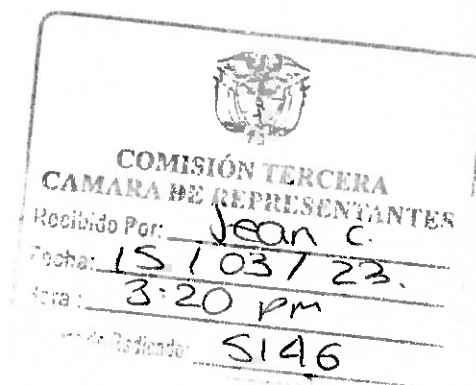 COMISIÓN TERCERA
CAMARA DE REPRESENTANTES
Recibido Por: Jean C.
Fecha: 15 / 03 / 23.
Hora: 3:20 pm
de Radicado: 5146